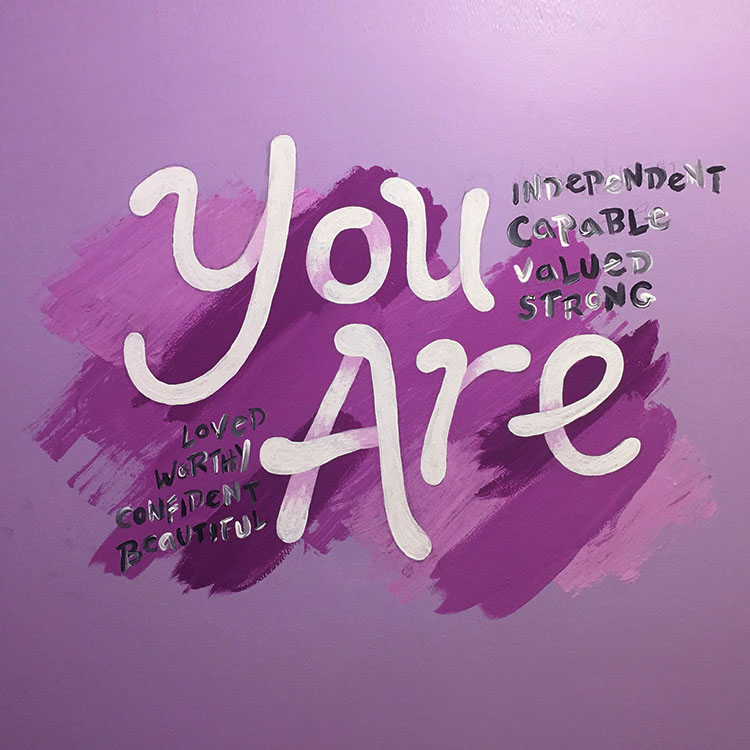 You
Are
INDePeNDeNT
CaPaBLe
VaLUeD
STRONG
LOVeD
WoRTHY
CONFiDeNT
BeaUTiFUL